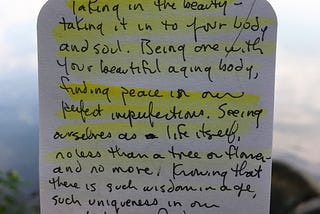 Taking in the beauty -
taking it in to your body
and soul. Being one with
your beautiful aging body,
finding peace in our
perfect imperfections. Seeing
ourselves as a life itself,
no less than a tree or flower
and no more. Knowing that
there is such wisdom in age,
such uniqueness in our